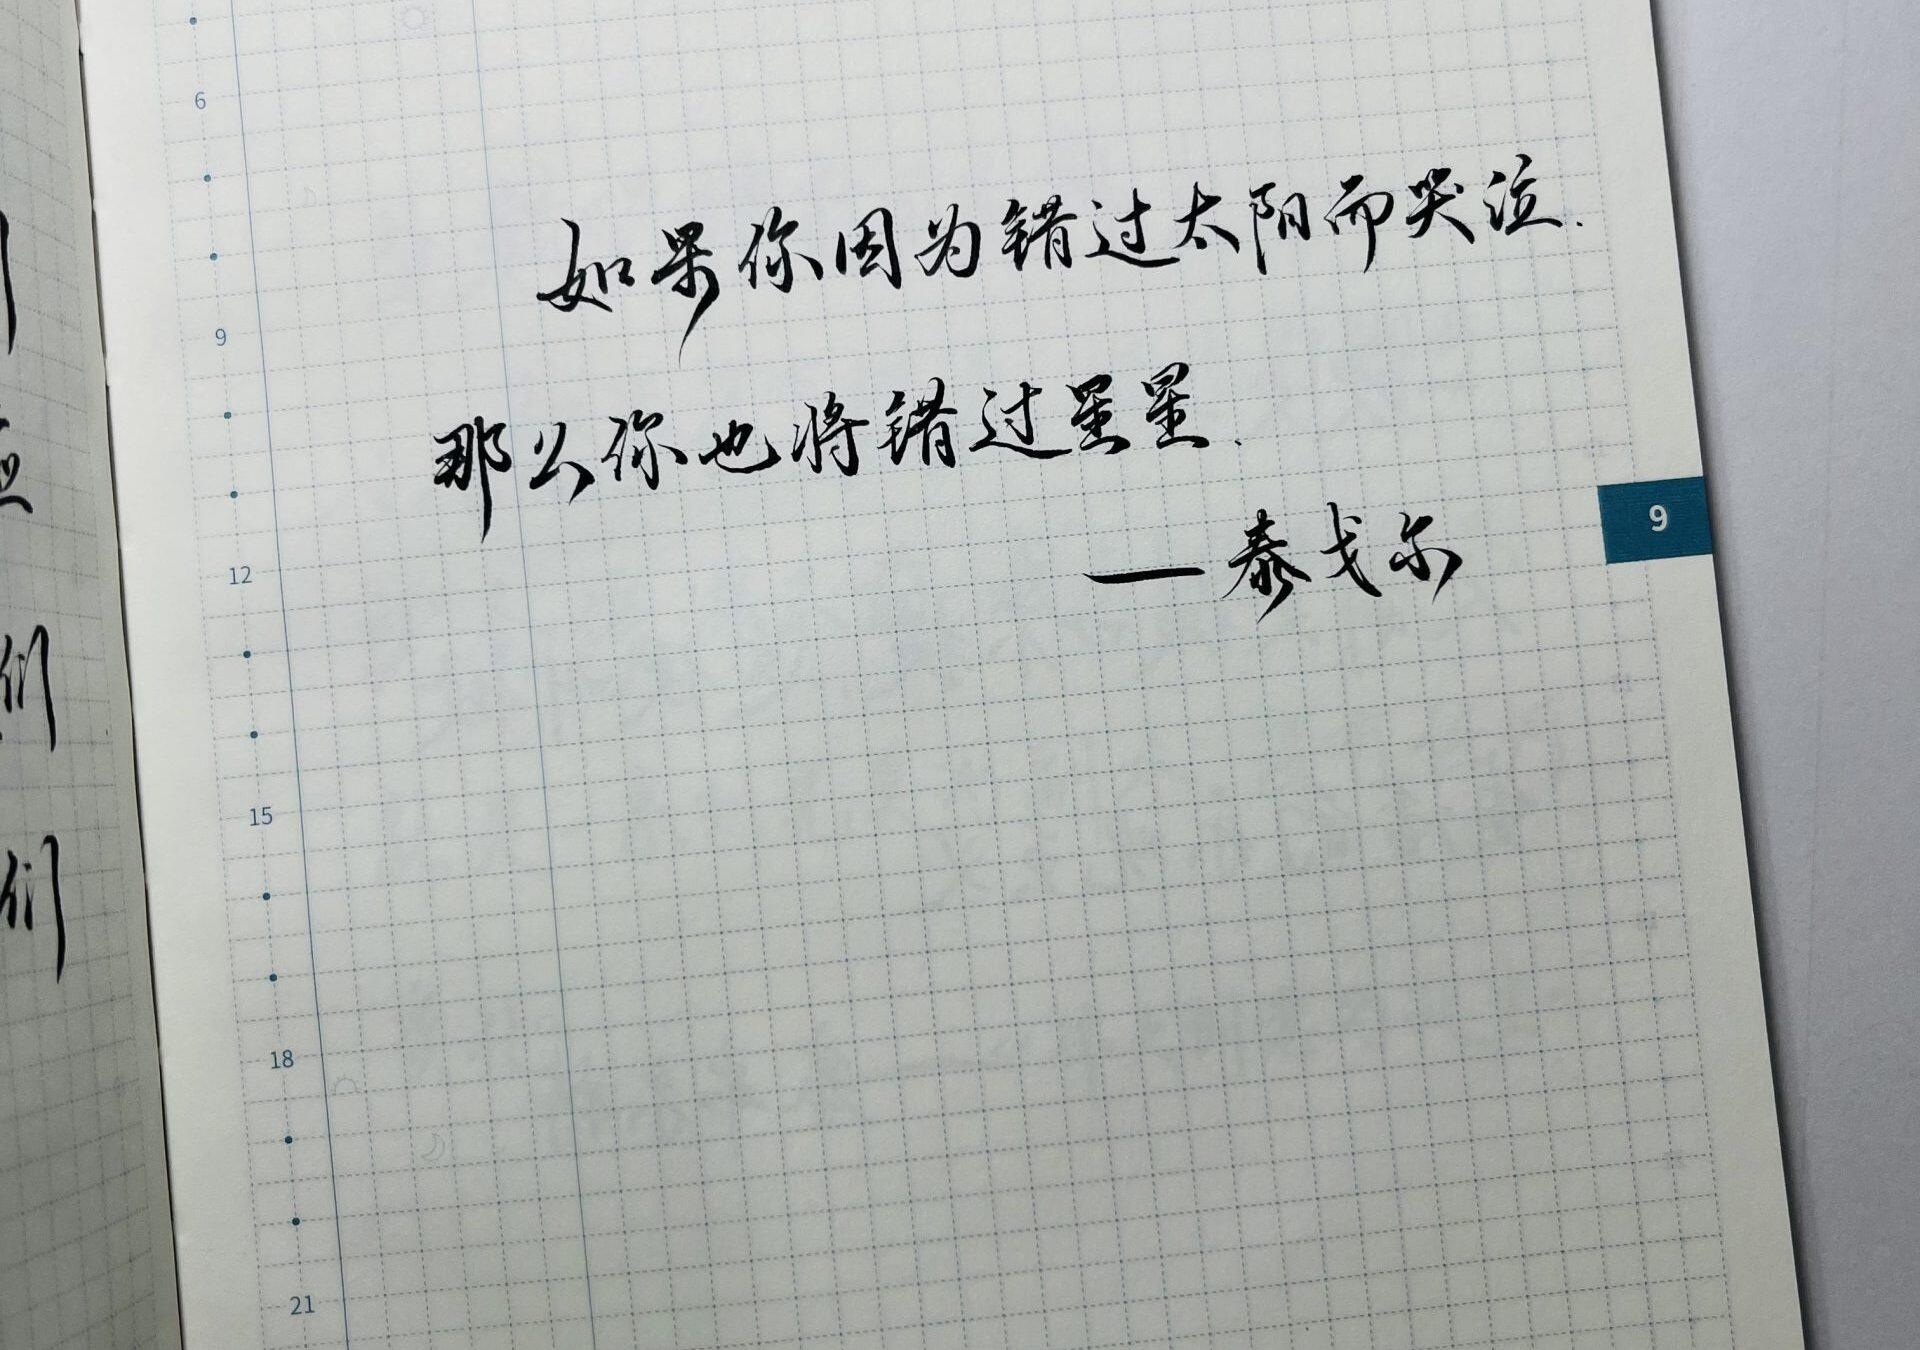 6
如果你因为错过太阳而哭泣.
9
那么你也将错过星星.
9
12
——泰戈尔
们
15
们
18
21